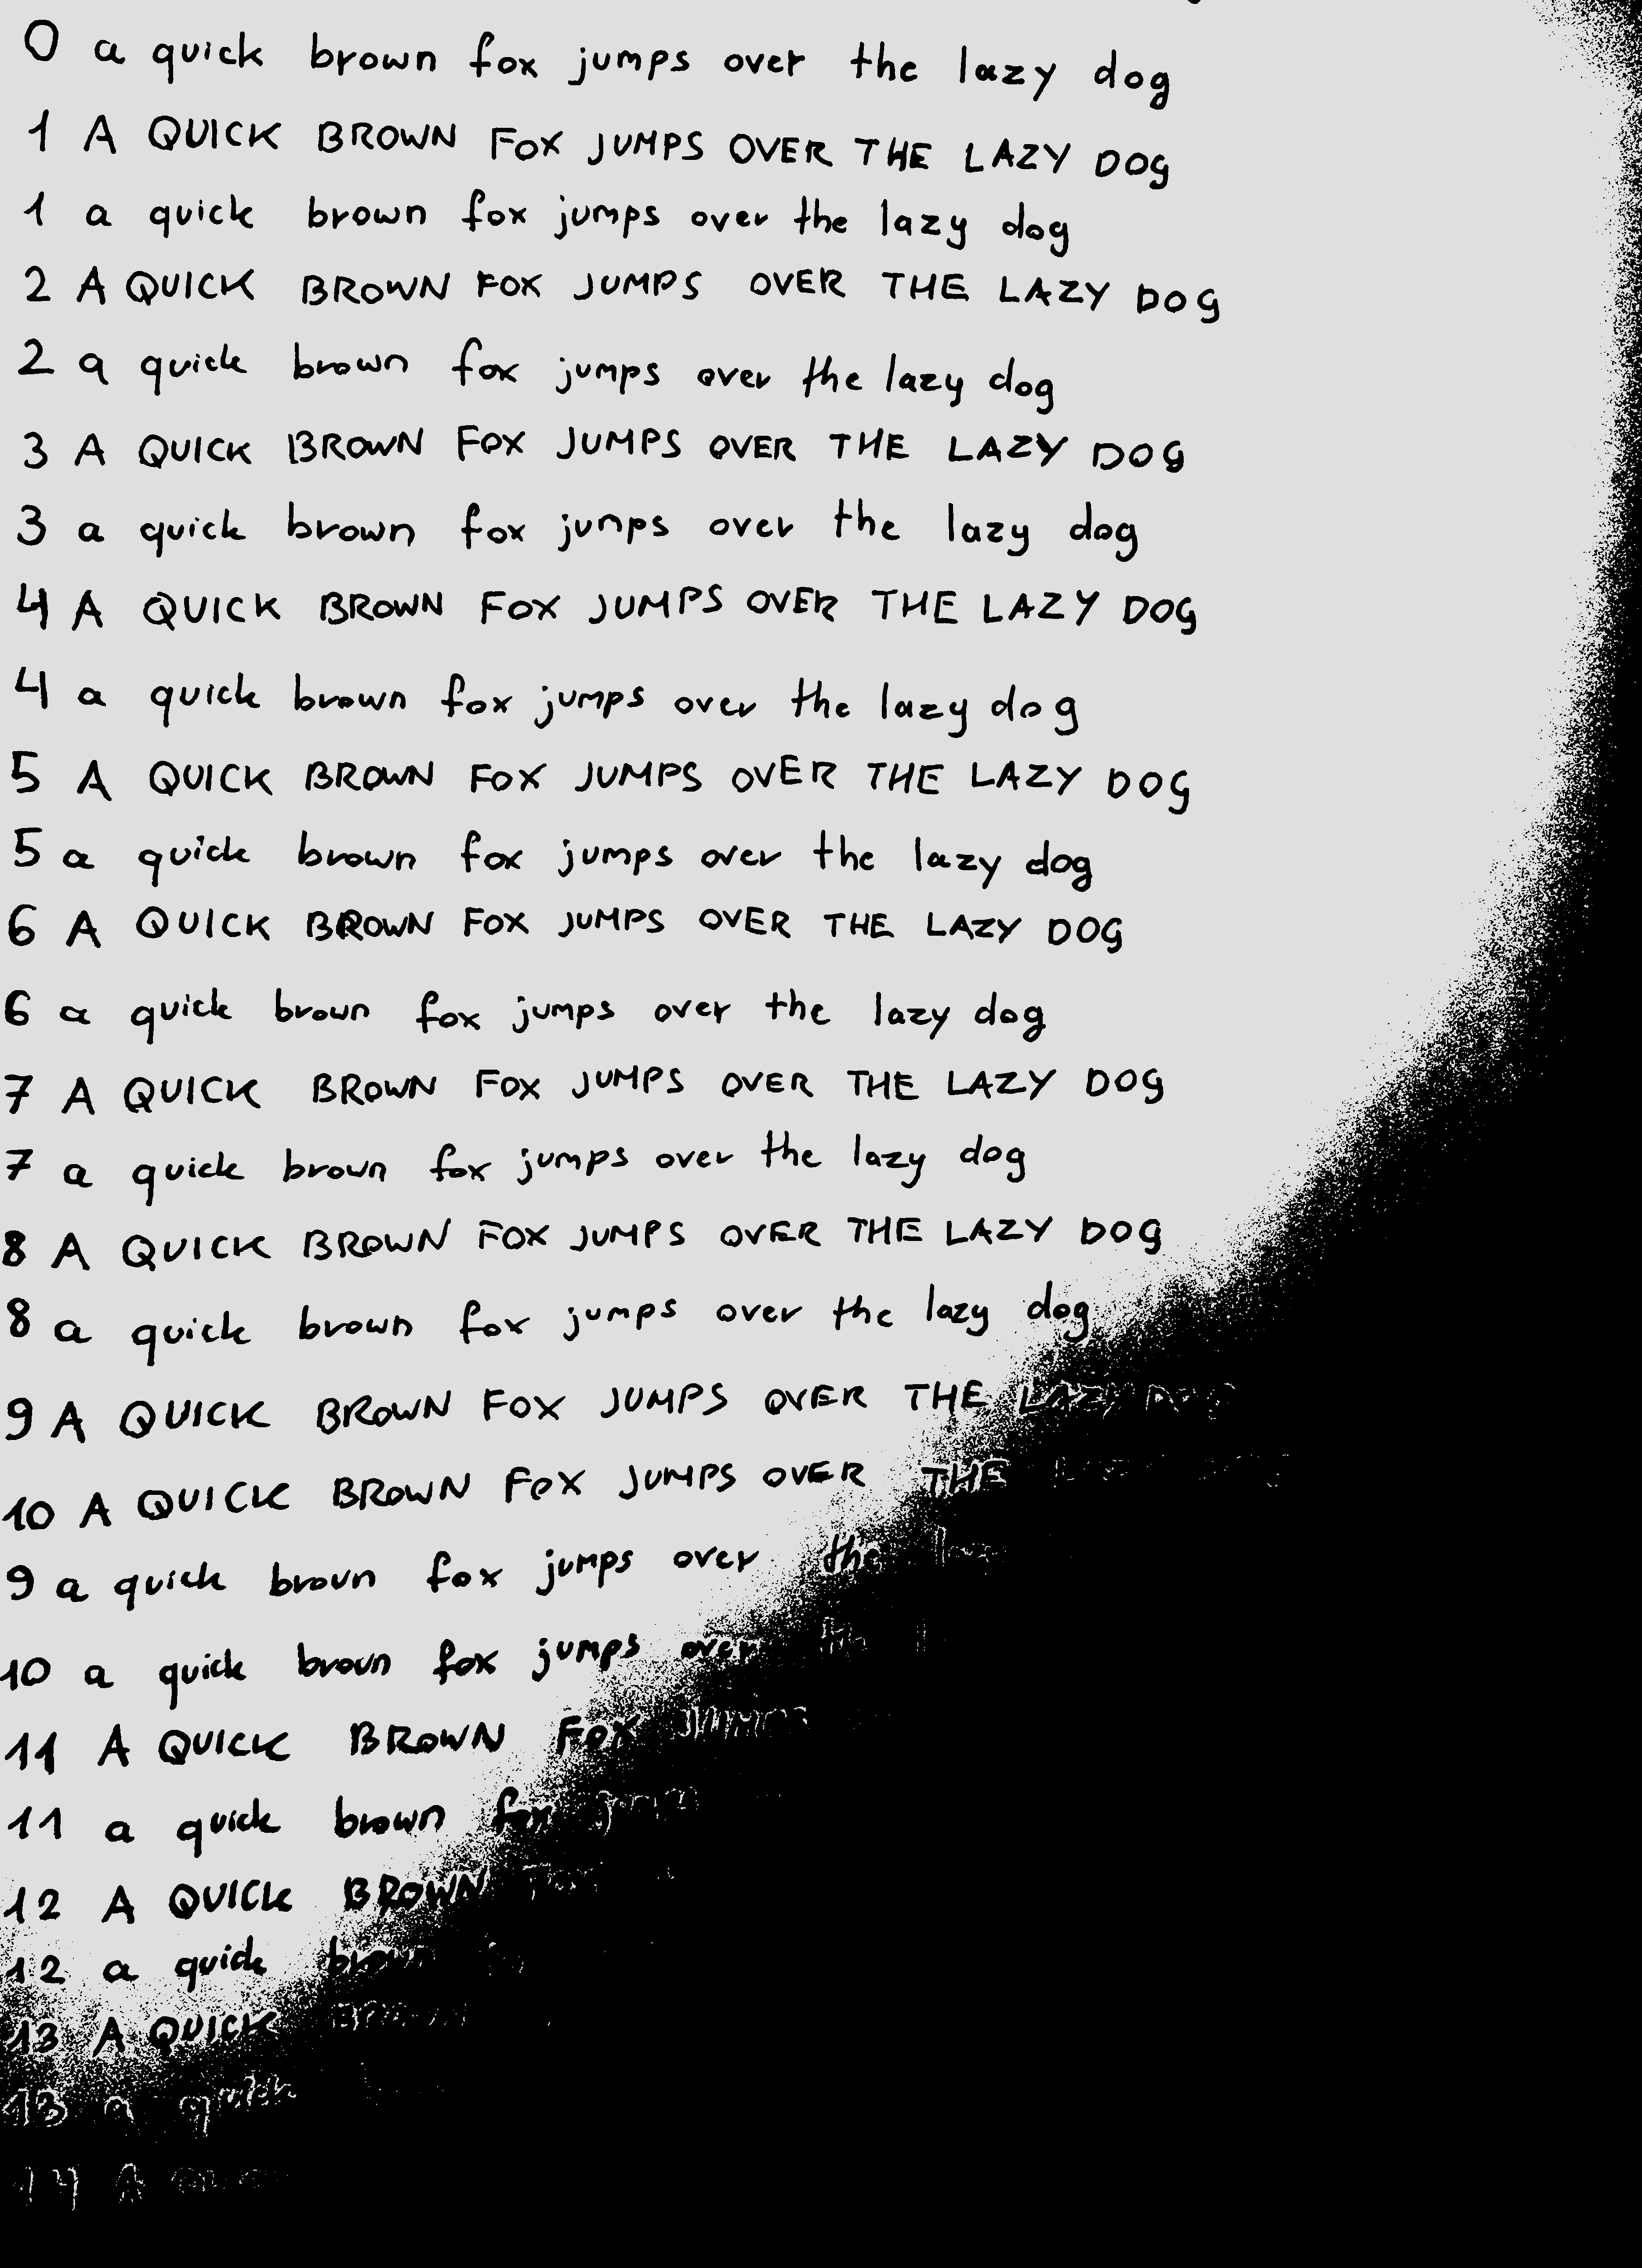 0 a quick brown fox jumps over the lazy dog
1 A QUICK BROWN FOX JUMPS OVER THE LAZY DOG
1 a quick brown fox jumps over the lazy dog
2 A QUICK BROWN FOX JUMPS OVER THE LAZY DOG
2 a quick brown fox jumps over the lazy dog
3 A QUICK BROWN FOX JUMPS OVER THE LAZY DOG
3 a quick brown fox jumps over the lazy dog
4 A QUICK BROWN FOX JUMPS OVER THE LAZY DOG
4 a quick brown fox jumps over the lazy dog
5 A QUICK BROWN FOX JUMPS OVER THE LAZY DOG
5 a quick brown fox jumps over the lazy dog
6 A QUICK BROWN FOX JUMPS OVER THE LAZY DOG
6 a quick brown fox jumps over the lazy dog
7 A QUICK BROWN FOX JUMPS OVER THE LAZY DOG
7 a quick brown fox jumps over the lazy dog
8 A QUICK BROWN FOX JUMPS OVER THE LAZY DOG
8 a quick brown fox jumps over the lazy dog
9 A QUICK BROWN FOX JUMPS OVER THE LAZY DOG
10 A QUICK BROWN FOX JUMPS OVER THE
9 a quick brown fox jumps over the
10 a quick brown fox jumps over
11 A QUICK BROWN FOX JUMPS
11 a quick brown fox
12 A QUICK BROWN
12 a quick brown
13 A QUICK BROWN
13 a quick
14 A